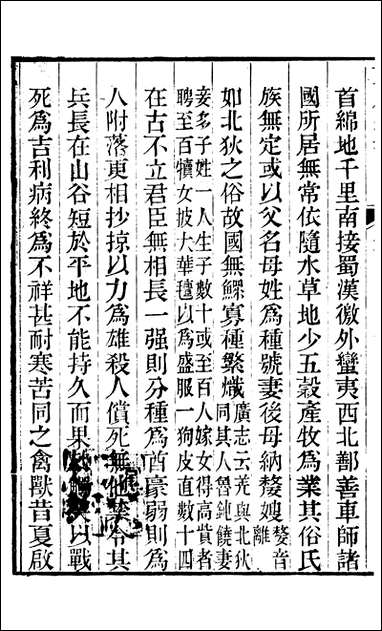 首綿地千里南接蜀漢徼外蠻夷西北鄯善車師諸
國所居無常依隨水草地少五穀產牧爲業其俗氏
族無定或以父名母姓爲種號妻後母納嫠嫂嫠音離
如北狄之俗故國無鰥寡種繁熾廣志云羌與北狄同其人魯鈍饒妻
妾多子姓一人生子數十或至百人嫁女得高貲者
聘至百犢女披大華氊以爲盛服一狗皮直數十四
在古不立君臣無相長一强則分種爲酋豪弱則爲
人附落更相抄掠以力爲雄殺人償死無他禁令其
兵長在山谷短於平地不能持久而果觸以戰
死爲吉利病終爲不祥甚耐寒苦同之禽獸昔夏啟